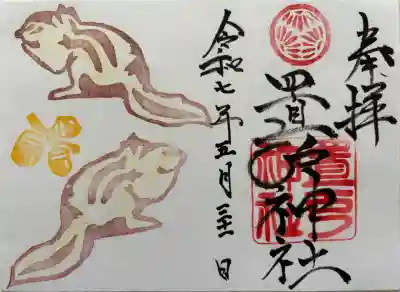 奉拝
置戸神社
置戸神社
令和七年五月 日